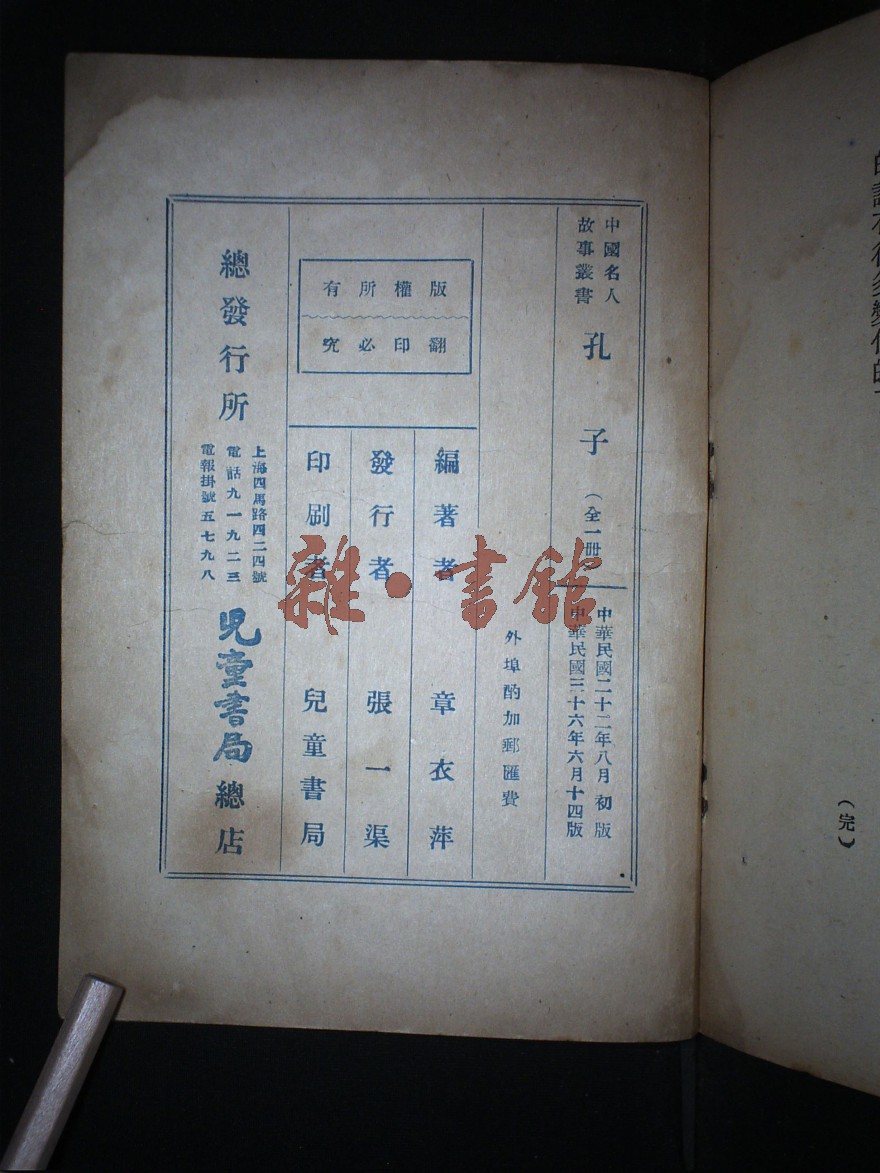 中國名人
故事叢書
孔子(全一冊)
中華民國二十二年八月初版
中華民國三十六年六月十四版
外埠酌加郵匯費
版權所有
翻印必究
編著者 章衣萍
發行者 張一渠
印刷者 兒童書局
總發行所
上海四馬路四二四號
電話九一九二三
電報掛號五七九八
兒童書局總店
(完)
雜·書館